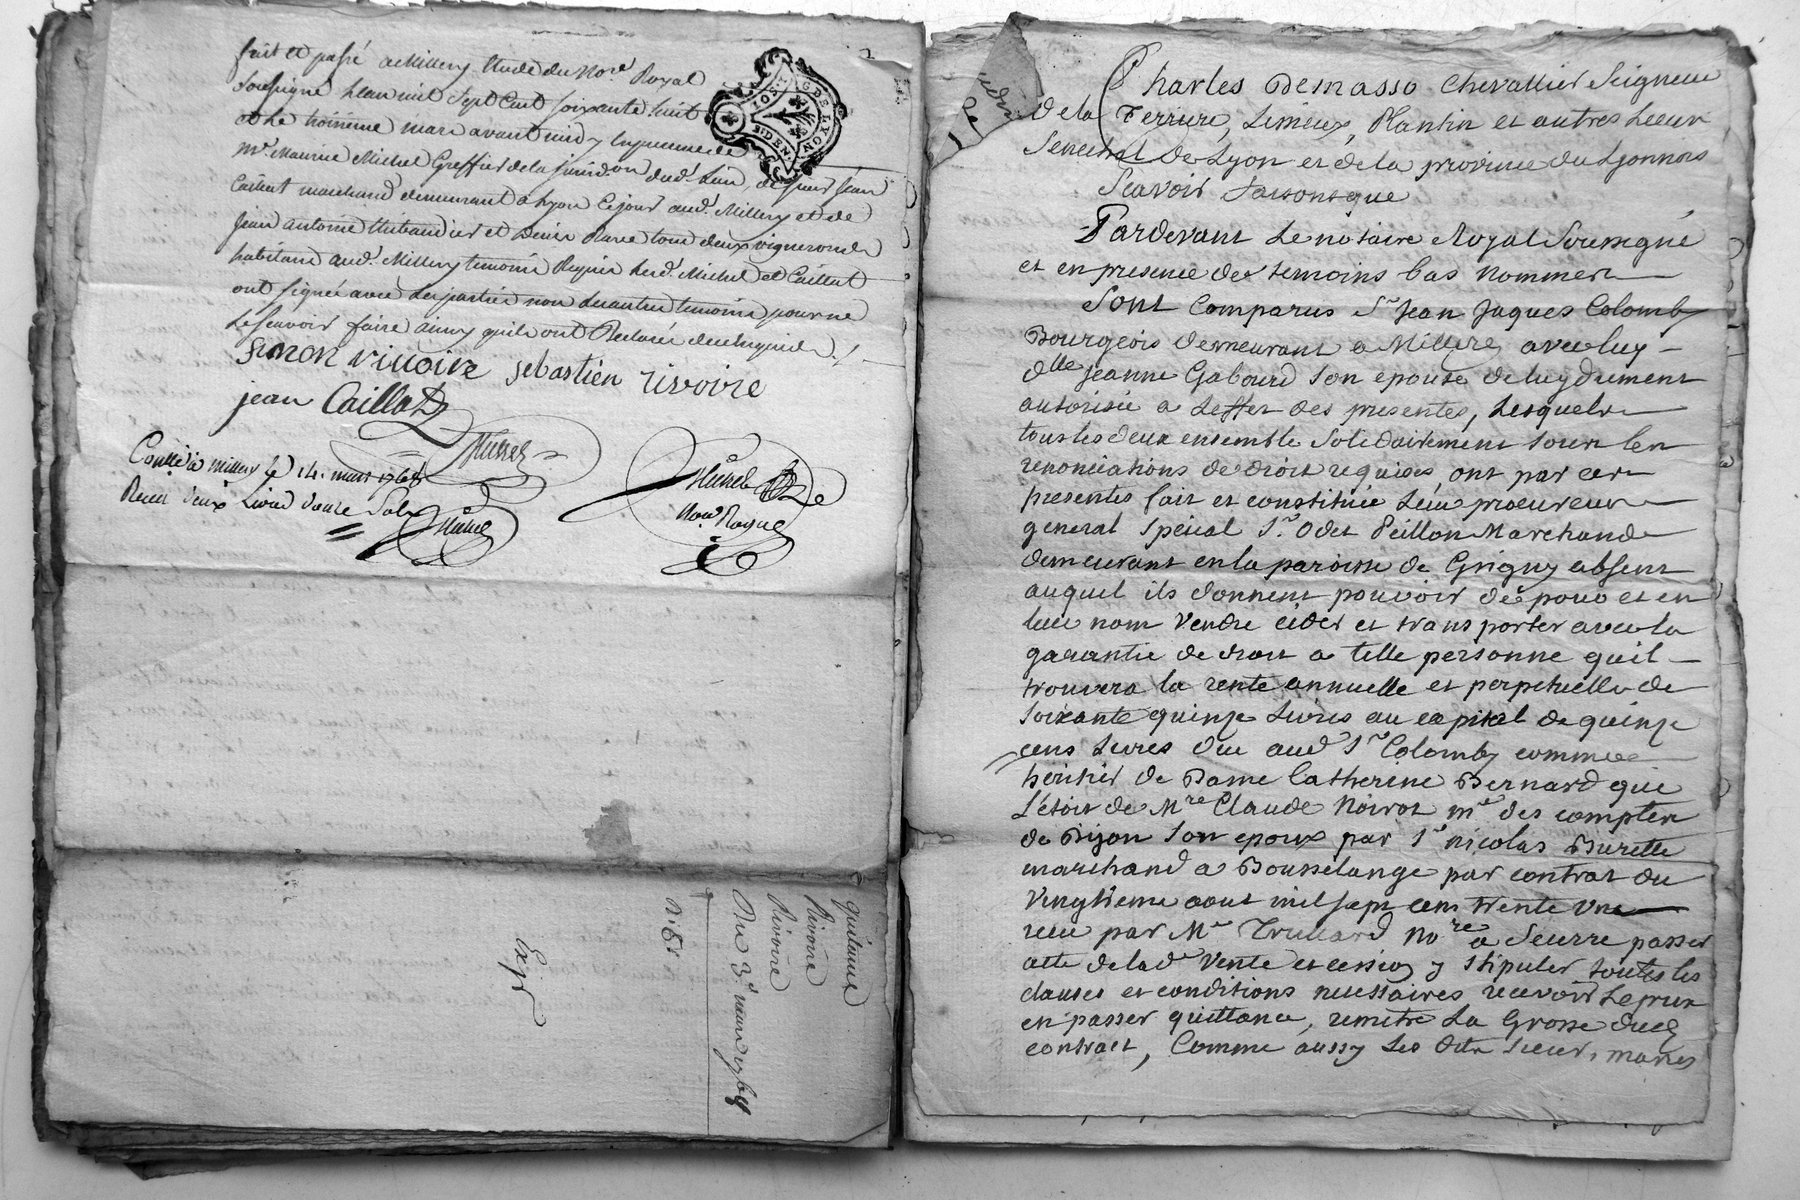 2
fait et passé a Millery Etude du No.re Royal
soussigné L'an mil sept cent soixante huit
et Le troisieme mars avant midy en presence de
M.e Maurice Michel Greffier de la juridon dud. Lieu, de sieur jean
Caillat marchand demeurant a Lyon ce jour aud. Millery et de
jean antoine thibaudier et Denis tous deux vignerons
habitans aud. Millery temoins Requis Lesd. Michel et Caillat
ont signés avec Les parties non Les autres temoins pour ne
Le scavoir faire ainsy quils ont Declaré de ce Enquis ./.
simon rivoire sebastien rivoire
jean Caillat
Michel
Michel
No.re Royal
Con.llé a millery le 14. mars 1768
Receu deux Livres douze Sols
Michel
G DE LYON
2.D EN.
quittance
Rivoire
Rivoire
Du 3.e mars 1768
Exp
Charles Demasso Chevallier Seigneur
de la Ferriere, Limieux, Plantin et autres Lieux
Senechal de Lyon et de la province du Lyonnois
Scavoir faisons que
Pardevant Le notaire Royal Soussigné
et en presence des temoins bas nommes
Sont Comparus Sr jean jaques Colomby
Bourgeois demeurant a Millere avec luy
dlle jeanne Gabourd son epouse de luy dument
autorisée a Leffet des presentes, Lesquels
tous les deux ensemble solidairement sous les
renonciations de droit requises, ont par ces
presentes fait et constitué Leur procureur
general special Sr. Odet Peillon Marchand
demeurant en la paroisse de Grigny absent
auquel ils donnent pouvoir de pour et en
leur nom Vendre ceder et transporter avec la
garantie de droit a telle personne quil
trouvera la rente annuelle et perpetuelle de
soixante quinze Livres au capital de quinze
cens Livres due aud Sr Colomby comme
heritier de Dame Catherine Bernard qui
L'etoit de Mre Claude Noirot me des comptes
de Dijon son epoux par Sr nicolas Burette
marchand a Bousselange par contrat du
Vingtieme aout mil sept cens trente Un
receu par Me Truuard Nore a Seurre passer
acte de lade Vente et cession y stipuler toutes les
clauses et conditions necessaires recevoir Le prix
en passer quittance, remettre La Grosse dud
contract, Comme aussy Les dits sieur, maries